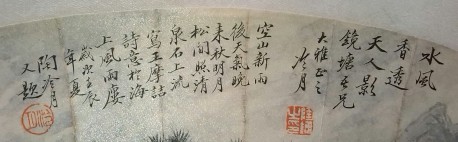 水風
香透
天人影
鏡塘吾兄
大雅正之
冷月
空山新雨
後天氣晚
来秋明月
松間照清
泉石上流
寫王摩詰
詩意於海
上風雨廔
歲次壬辰
年夏
陶冷月
又題